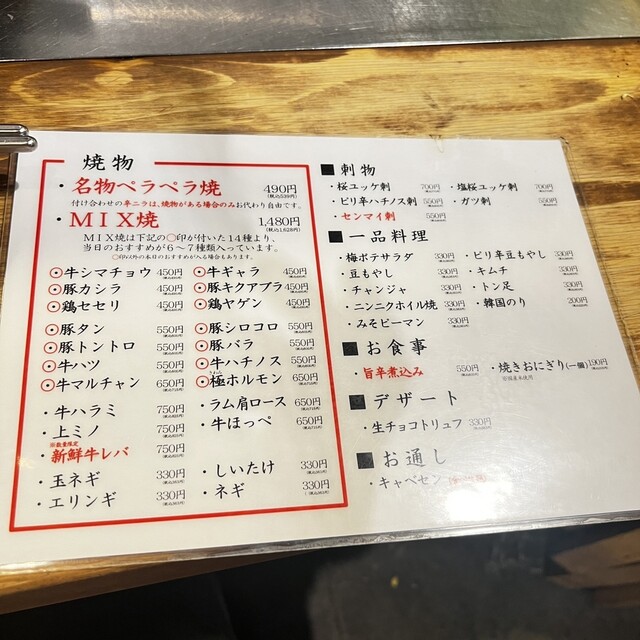 焼物
・名物ペラペラ焼 490円
(税込539円)
付け合わせの辛ニラは、焼物がある場合のみお代わり自由です。
・MIX焼 1,480円
(税込1,628円)
MIX焼は下記の○印が付いた14種より、
当日のおすすめが6～7種類入っています。
○印以外の本日のおすすめがへる場合もあります。
◉牛シマチョウ 450円
◉豚カシラ 450円
◉鶏セセリ 450円
◉豚タン 550円
◉豚トントロ 550円
◉牛ハツ 550円
◉牛マルチャン 650円
・牛ハラミ 750円
・上ミノ 750円
※数量限定
・新鮮牛レバ 750円
・玉ネギ 330円
・エリンギ 330円
◉牛ギャラ 450円
◉豚キクアブラ 450円
◉鶏ヤゲン 450円
◉豚シロコロ 550円
◉豚バラ 550円
◉牛ハチノス 550円
◉極ホルモン 650円
・ラム肩ロース 650円
・牛ほっぺ 650円
・しいたけ 330円
・ネギ 330円
■刺物
・桜ユッケ刺 700円
・ピリ辛ハチノス刺 550円
・センマイ刺 550円
・塩桜ユッケ刺 700円
・ガツ刺 550円
■一品料理
・梅ポテサラダ 330円
・豆もやし 330円
・チャンジャ 330円
・ニンニクホイル焼 330円
・みそピーマン 330円
・ピリ辛豆もやし 330円
・キムチ 330円
・トン足 330円
・韓国のり 200円
■お食事
・旨辛煮込み 550円
・焼きおにぎり(一個) 190円
※国産米使用
■デザート
・生チョコトリュフ 330円
■お通し
・キャベセン